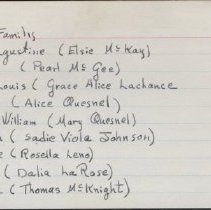 Family
gustine (Elsie McKay)
(Pearl McGee)
Louis (Grace Alice Lachance
(Alice Quesnel)
William (Mary Quesnel)
(Sadie Viola Johnson)
(Rosella Leno)
(Dalia LaRose)
(Thomas McKnight)